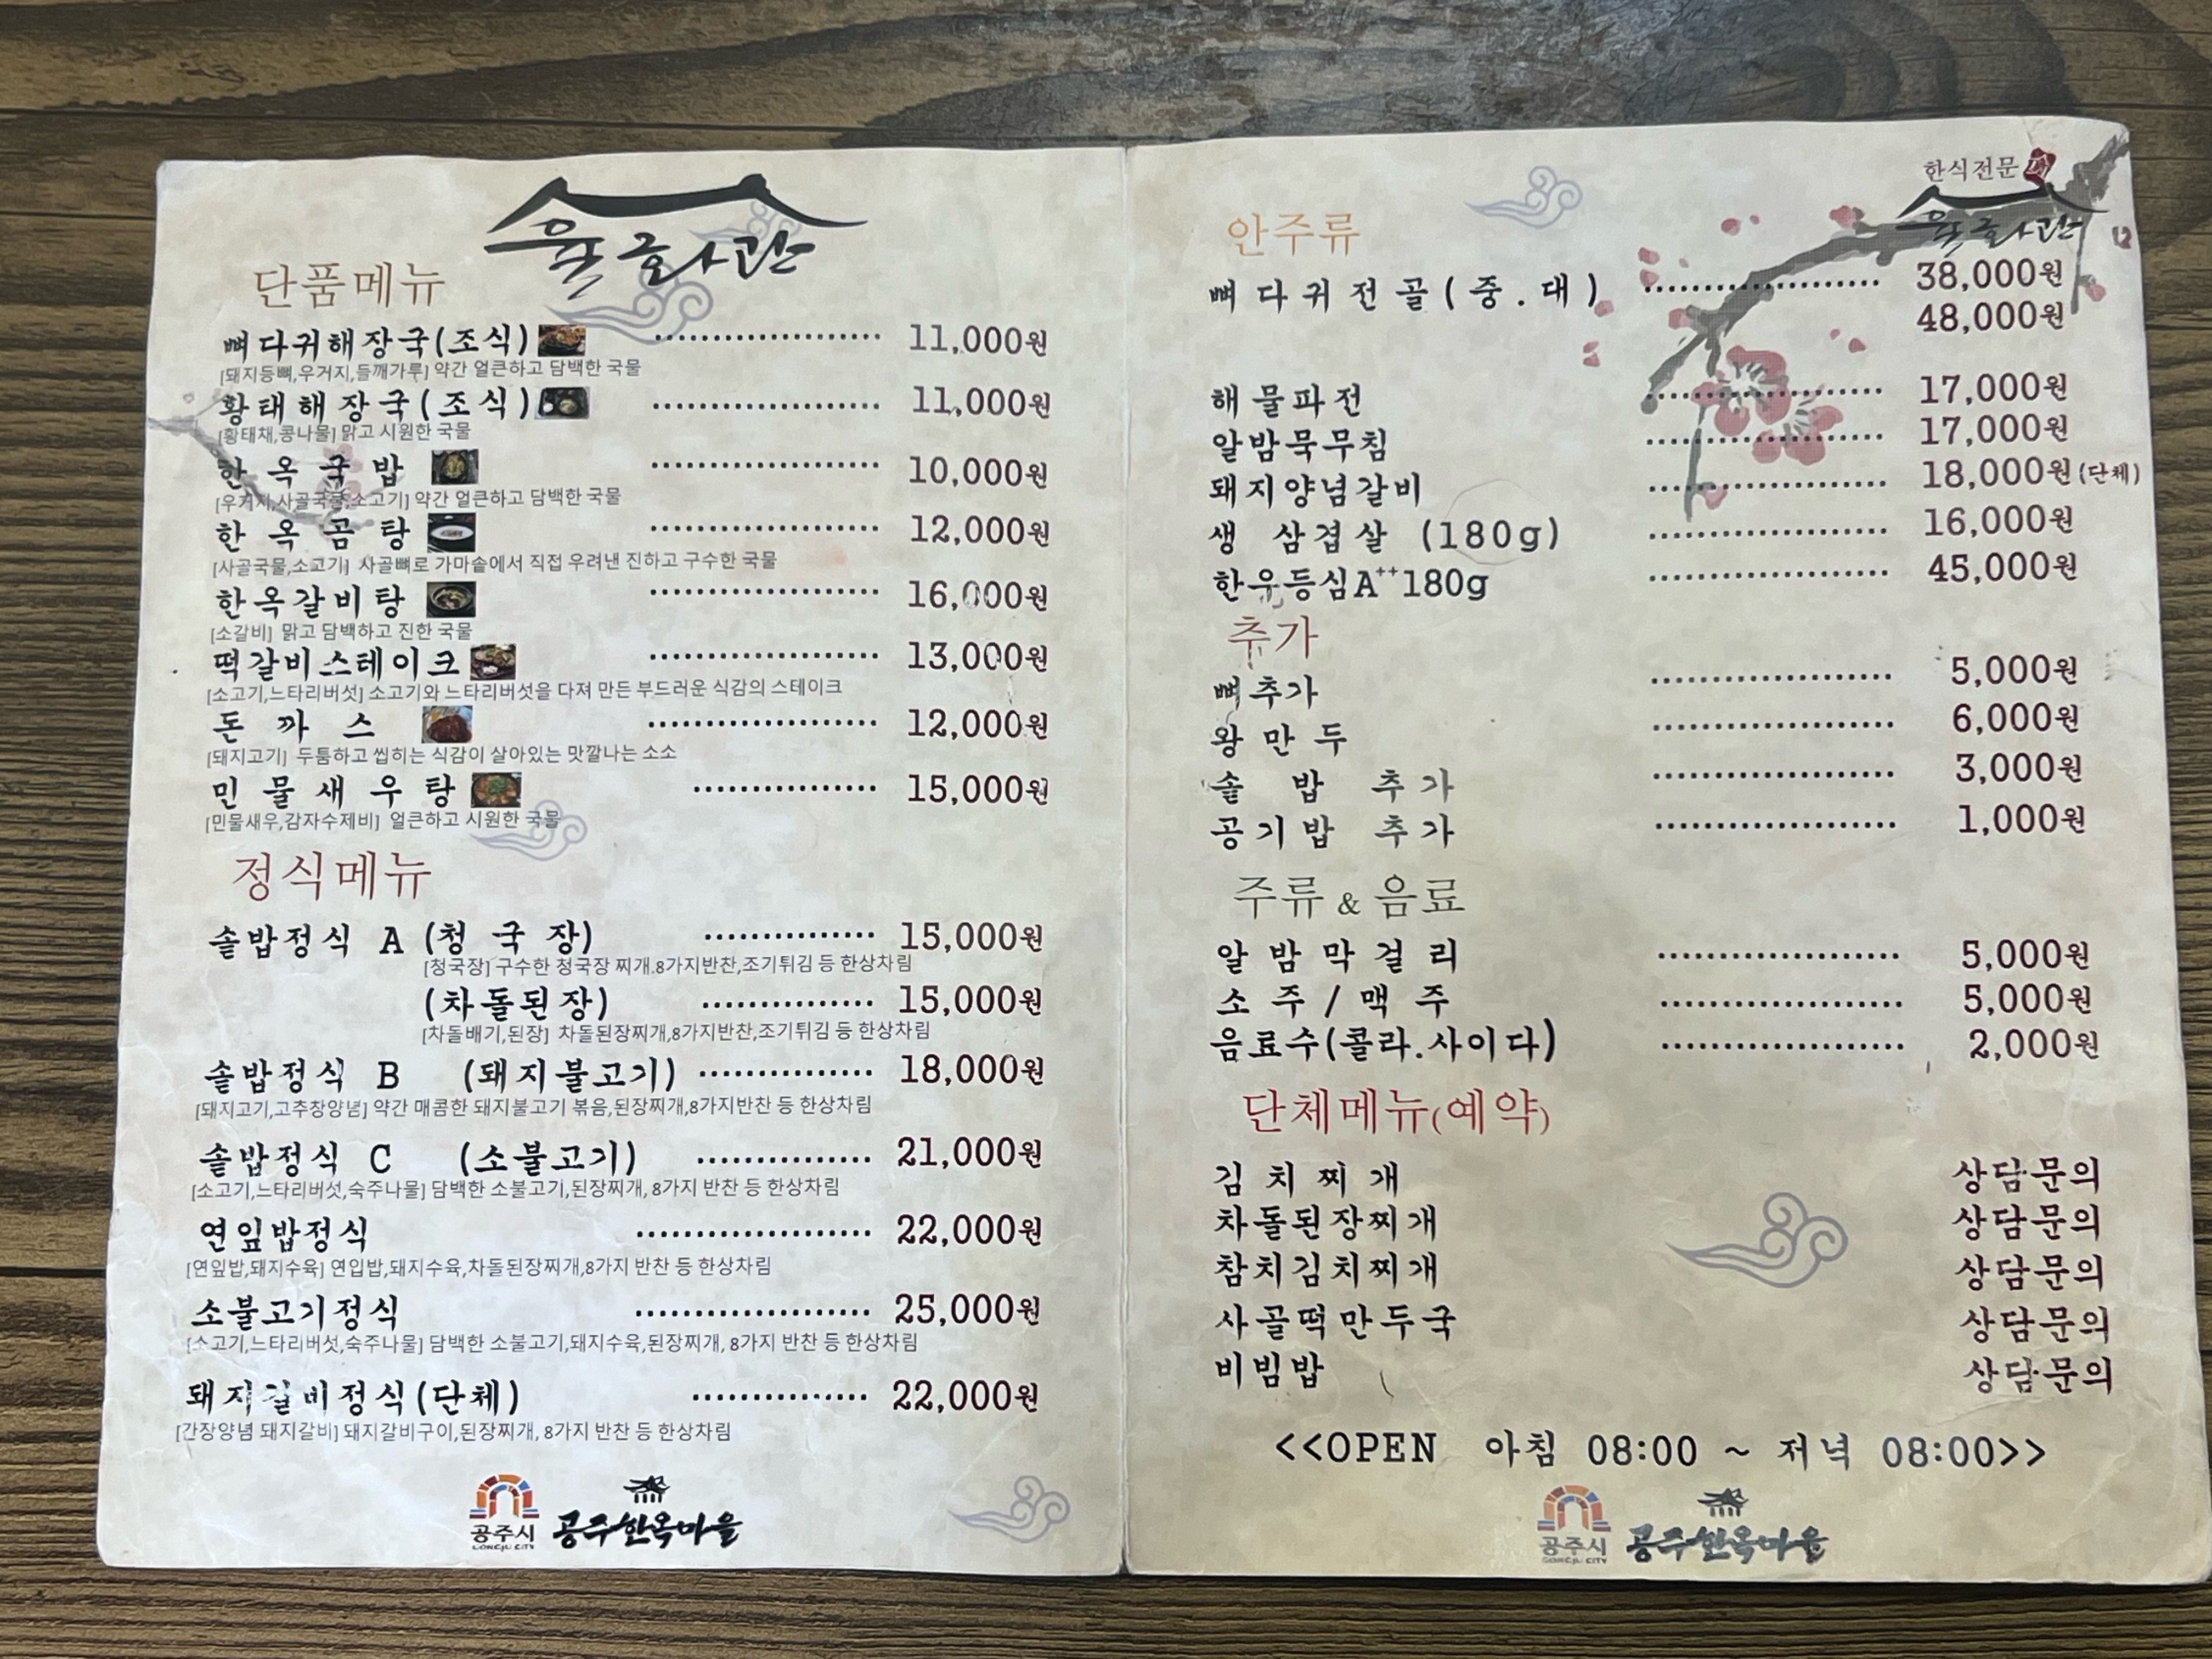 육화관
단품메뉴
뼈다귀해장국(조식) ........................ 11,000원
[돼지등뼈,우거지,들깨가루] 약간 얼큰하고 담백한 국물
황태해장국(조식) ........................ 11,000원
[황태채,콩나물] 맑고 시원한 국물
한옥국밥 ........................ 10,000원
[우거지,사골국물,소고기] 약간 얼큰하고 담백한 국물
한옥곰탕 ........................ 12,000원
[사골국물,소고기] 사골뼈로 가마솥에서 직접 우려낸 진하고 구수한 국물
한옥갈비탕 ........................ 16,000원
[소갈비] 맑고 담백하고 진한 국물
떡갈비스테이크 ........................ 13,000원
[소고기,느타리버섯] 소고기와 느타리버섯을 다져 만든 부드러운 식감의 스테이크
돈까스 ........................ 12,000원
[돼지고기] 두툼하고 씹히는 식감이 살아있는 맛깔나는 소소
민물새우탕 ................... 15,000원
[민물새우,감자수제비] 얼큰하고 시원한 국물
정식메뉴
솥밥정식 A (청국장) .................. 15,000원
[청국장] 구수한 청국장 찌개.8가지반찬,조기튀김 등 한상차림
(차돌된장) .................. 15,000원
[차돌배기,된장] 차돌된장찌개,8가지반찬,조기튀김 등 한상차림
솥밥정식 B (돼지불고기) .................. 18,000원
[돼지고기,고추장양념] 약간 매콤한 돼지불고기 볶음,된장찌개,8가지반찬 등 한상차림
솥밥정식 C (소불고기) .................. 21,000원
[소고기,느타리버섯,숙주나물] 담백한 소불고기,된장찌개, 8가지 반찬 등 한상차림
연잎밥정식 ........................ 22,000원
[연잎밥,돼지수육] 연입밥,돼지수육,차돌된장찌개,8가지 반찬 등 한상차림
소불고기정식 ........................ 25,000원
[소고기,느타리버섯,숙주나물] 담백한 소불고기,돼지수육,된장찌개, 8가지 반찬 등 한상차림
돼지갈비정식(단체) .................. 22,000원
[간장양념 돼지갈비] 돼지갈비구이,된장찌개, 8가지 반찬 등 한상차림
공주시
GONGJU CITY
공주한옥마을
한식전문
육화관
안주류
뼈다귀전골(중.대) ........................ 38,000원
48,000원
해물파전 ........................ 17,000원
알밤묵무침 ........................ 17,000원
돼지양념갈비 ........................ 18,000원(단체)
생 삼겹살 (180g) ........................ 16,000원
한우등심A++180g ........................ 45,000원
추가
뼈추가 ........................ 5,000원
왕만두 ........................ 6,000원
솥밥 추가 ........................ 3,000원
공기밥 추가 ........................ 1,000원
주류 & 음료
알밤막걸리 ........................ 5,000원
소주/맥주 ........................ 5,000원
음료수(콜라.사이다) ........................ 2,000원
단체메뉴(예약)
김치찌개 상담문의
차돌된장찌개 상담문의
참치김치찌개 상담문의
사골떡만두국 상담문의
비빔밥 상담문의
<<OPEN 아침 08:00 ~ 저녁 08:00>>
공주시
GONGJU CITY
공주한옥마을